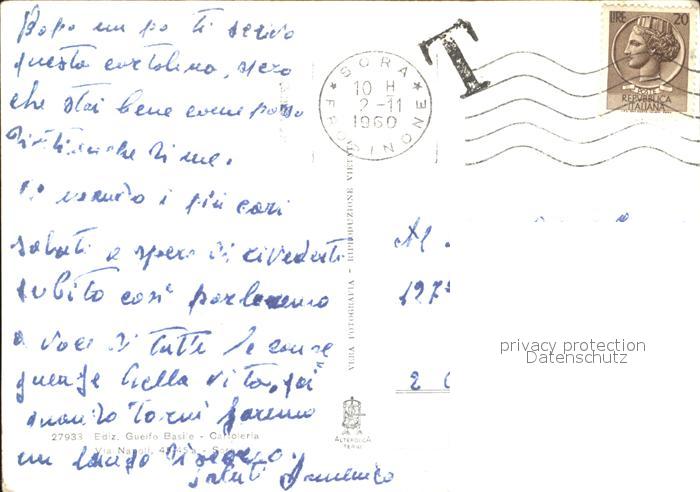 Dopo un po ti scrivo
questa cartolina, spero
che stai bene come posso
dirti anche di me.
Ti mando i più cari
saluti e spero di rivederti
subito così parleremo
a voce di tutte le conse
guenze della vita, poi
quando torni faremo
un lungo discorso.
saluti Domenico
SORA
10 H
2-11
1960
FROSINONE
T
LIRE 20
POSTE
REPUBBLICA
ITALIANA
VERA FOTOGRAFIA - RIPRODUZIONE VIETATA
Al
privacy protection
Datenschutz
ALTEROCCA
TERNI
27933 Ediz. Guelfo Basile - Cartoleria
Via Napoli,